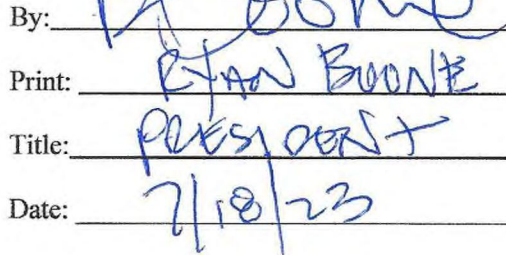 By:
Print: RYAN BOONE
Title: PRESIDENT
Date: 7/18/23